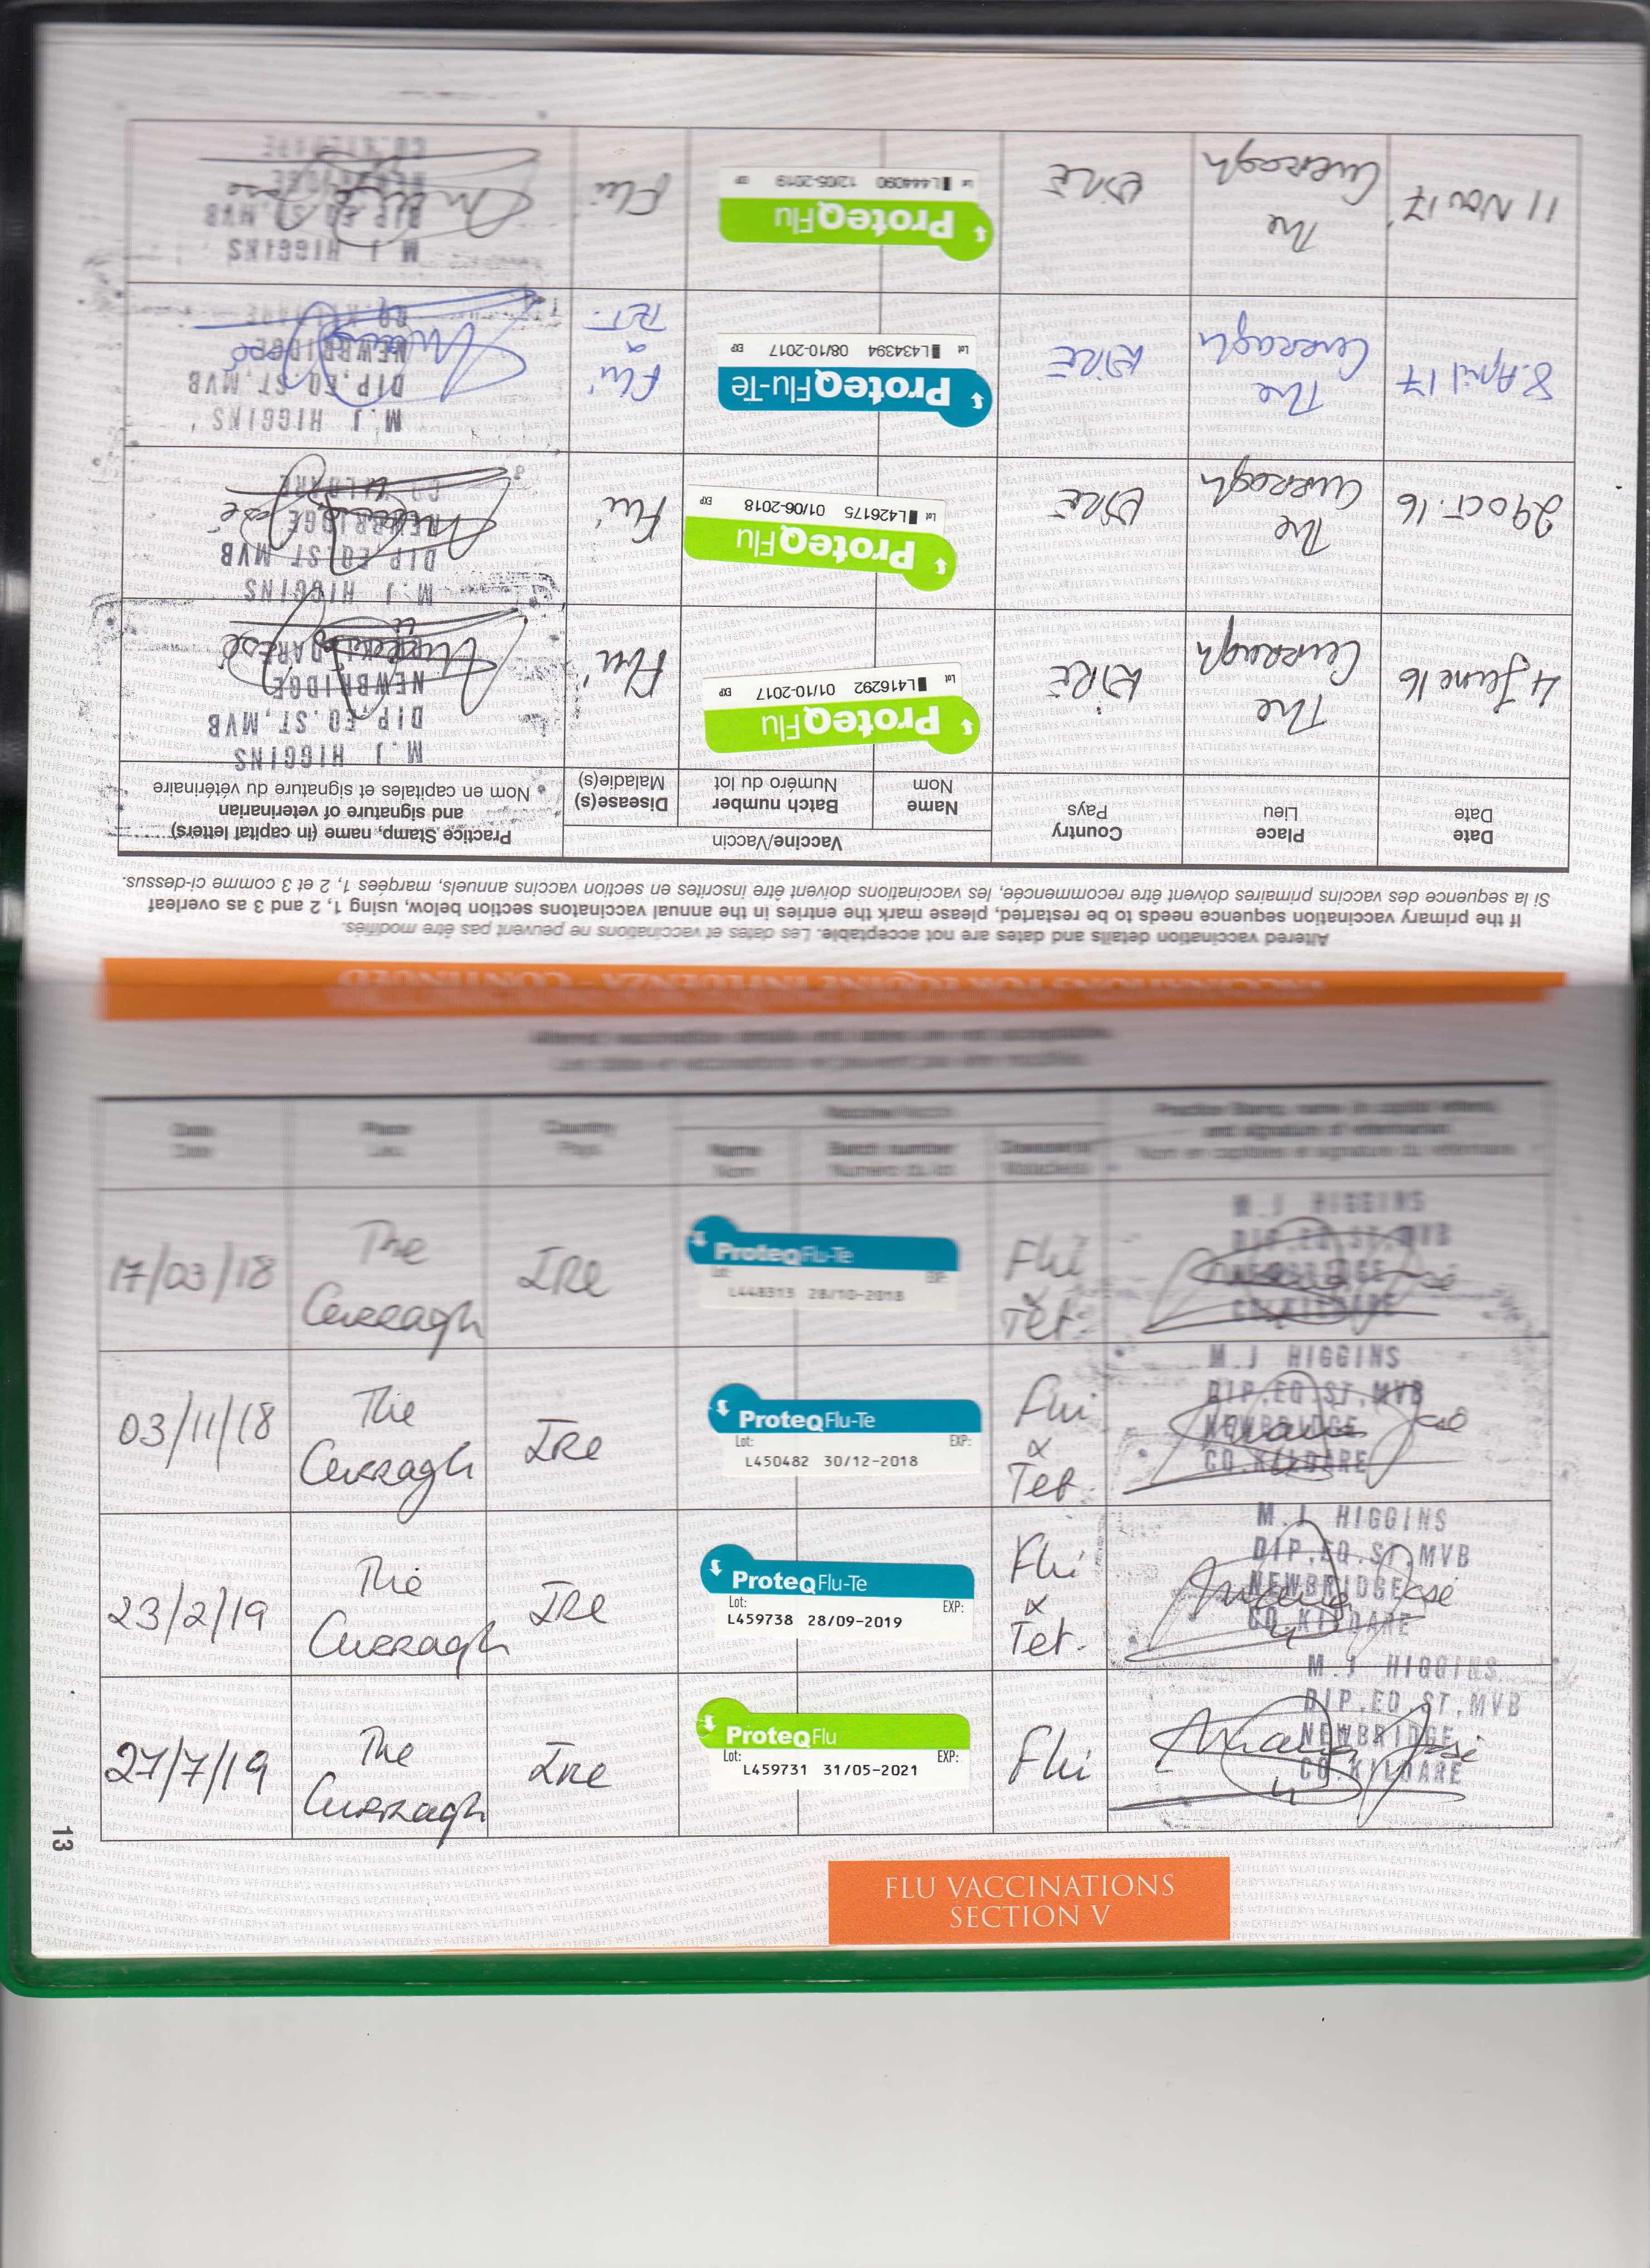 VACCINATIONS FOR EQUINE INFLUENZA - CONTINUED
Altered vaccination details and dates are not acceptable. Les dates et vaccinations ne peuvent pas être modifiés.
If the primary vaccination sequence needs to be restarted, please mark the entries in the annual vaccinatons section below, using 1, 2 and 3 as overleaf
Si la séquence des vaccins primaires doivent être recommencée, les vaccinations doivent être inscrites en section vaccins annuels, marqées 1, 2 et 3 comme ci-dessus.
Date
Date
Place
Lieu
Country
Pays
Vaccine/Vaccin
Name
Nom
Batch number
Numéro du lot
Disease(s)
Maladie(s)
Practice Stamp, name (in capital letters)
and signature of veterinarian
Nom en capitales et signature du vétérinaire
4 June 16
The
Curragh
EIRE
ProteqFlu
Lot L416292 01/10-2017 EXP
Flu
M.J HIGGINS
DIP.EQ.ST,MVB
NEWBRIDGE
29 OCT. 16
The
Curragh
EIRE
ProteqFlu
Lot L426175 01/06-2018 EXP
Flu
M.J HIGGINS
DIP.EQ.ST.MVB
NEWBRIDGE
CO.KILDARE
8. April 17
The
Curragh
EIRE
ProteqFlu-Te
Lot L434394 08/10-2017 EXP
Flu
&
TET.
M.J HIGGINS
DIP.EQ.ST.MVB
NEWBRIDGE
CO.KILDARE
11 Nov 17
The
Curragh
EIRE
ProteqFlu
Lot L444090 12/05-2019 EXP
Flu
M J HIGGINS
DIP.EQ.ST.MVB
NEWBRIDGE
CO.KILDARE
Altered vaccination details and dates are not acceptable.
Les dates et vaccinations ne peuvent pas être modifiés.
Date
Date
Place
Lieu
Country
Pays
Vaccine/Vaccin
Name
Nom
Batch number
Numéro du lot
Disease(s)
Maladie(s)
Practice Stamp, name (in capital letters)
and signature of veterinarian
Nom en capitales et signature du vétérinaire
17/03/18
The
Curragh
IRe
ProteqFlu-Te
Lot: EXP:
L448313 28/10-2018
Flu
&
Tet.
M.J HIGGINS
DIP.EQ.ST,MVB
NEWBRIDGE
CO.KILDARE
03/11/18
The
Curragh
IRe
ProteqFlu-Te
Lot: EXP:
L450482 30/12-2018
Flu
&
Tet.
M.J HIGGINS
DIP.EQ.ST,MVB
NEWBRIDGE
CO.KILDARE
23/2/19
The
Curragh
IRe
ProteqFlu-Te
Lot: EXP:
L459738 28/09-2019
Flu
&
Tet.
M.J HIGGINS
DIP.EQ.ST,MVB
NEWBRIDGE
CO.KILDARE
27/7/19
The
Curragh
IRe
ProteqFlu
Lot: EXP:
L459731 31/05-2021
Flu
M.J HIGGINS
DIP.EQ.ST,MVB
NEWBRIDGE
CO.KILDARE
13
FLU VACCINATIONS
SECTION V